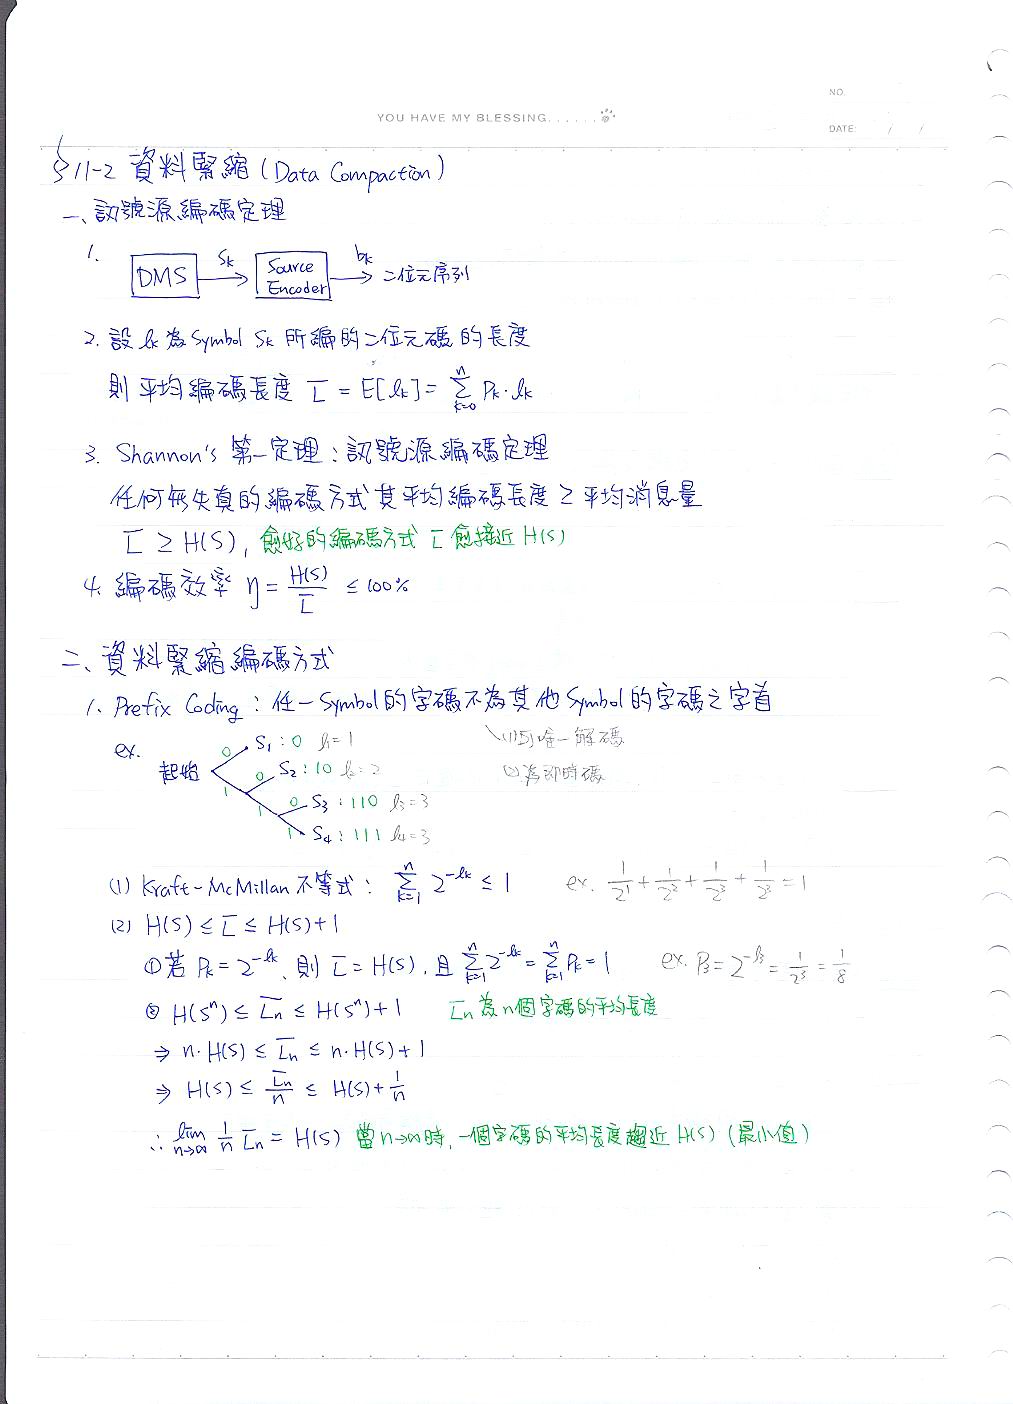 NO.
YOU HAVE MY BLESSING......
DATE: / /
§11-2 資料緊縮 (Data Compaction)
一、訊號源編碼定理
1. DMS Sk Source Encoder bk 二位元序列
2. 設 lk 為 Symbol Sk 所編的二位元碼的長度
則平均編碼長度 L̄ = E[lk] = Σ_{k=0}^{n} Pk·lk
3. Shannon's 第一定理：訊號源編碼定理
任何無失真的編碼方式其平均編碼長度 ≥ 平均消息量
L̄ ≥ H(S), 愈好的編碼方式 L̄ 愈接近 H(S)
4. 編碼效率 η = H(S)/L̄ ≤ 100%
二、資料緊縮編碼方式
1. Prefix Coding：任一Symbol的字碼不為其他Symbol的字碼之字首
ex. 0 S1：0 l1=1 (1)可唯一解碼
起始 0 S2：10 l2=2 ②為即時碼
1 0 S3：110 l3=3
1 1 S4：111 l4=3
(1) Kraft-McMillan 不等式： Σ_{k=1}^{n} 2^{-lk} ≤ 1 ex. 1/2^1 + 1/2^2 + 1/2^3 + 1/2^3 = 1
(2) H(S) ≤ L̄ ≤ H(S)+1
① 若 Pk = 2^{-lk}, 則 L̄ = H(S), 且 Σ_{k=1}^{n} 2^{-lk} = Σ_{k=1}^{n} Pk = 1 ex. P3 = 2^{-l3} = 1/2^3 = 1/8
② H(S^n) ≤ L̄n ≤ H(S^n)+1 L̄n 為n個字碼的平均長度
⇒ n·H(S) ≤ L̄n ≤ n·H(S)+1
⇒ H(S) ≤ L̄n/n ≤ H(S)+1/n
∴ lim_{n→∞} 1/n L̄n = H(S) 當n→∞時, 一個字碼的平均長度趨近 H(S) (最小值)